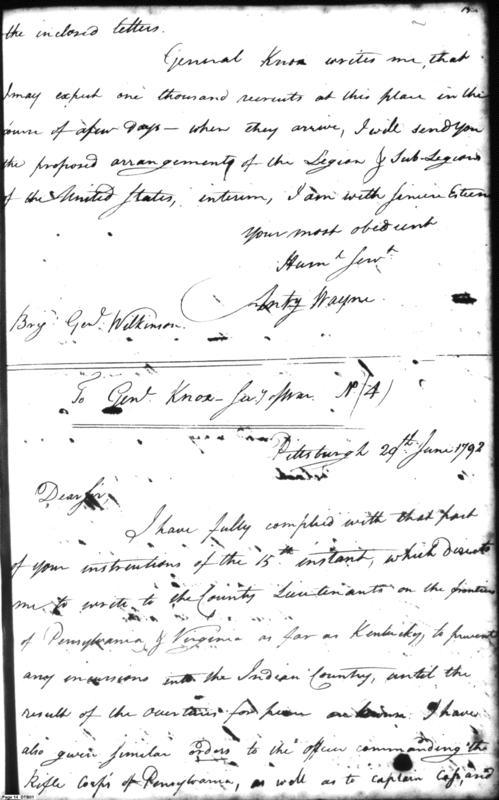 the inclosed letters.
General Knox writes me, that
I may expect one thousand recruits at this place in the
course of a few days — when they arrive, I will send you
the proposed arrangement of the Legion & Sub-Legions
of the United States, interim, I am with sincere Esteem
Your most obedient
Humᵉ Servᵗ
Anty Wayne
Brig Genl. Wilkinson.
To Genl. Knox — Secy of War. No (4)
Pittsburgh 29th June 1792
Dear Sir,
I have fully complied with that part
of your instructions of the 15th instant, which directs
me to write to the County Lieutenants on the frontiers
of Pennsylvania & Virginia as far as Kentucky, to prevent
any incursions into the Indian Country, until the
result of the overtures for peace are known. I have
also given similar orders to the officer commanding the
Rifle Corps of Pennsylvania, as well as to captain Cass, and